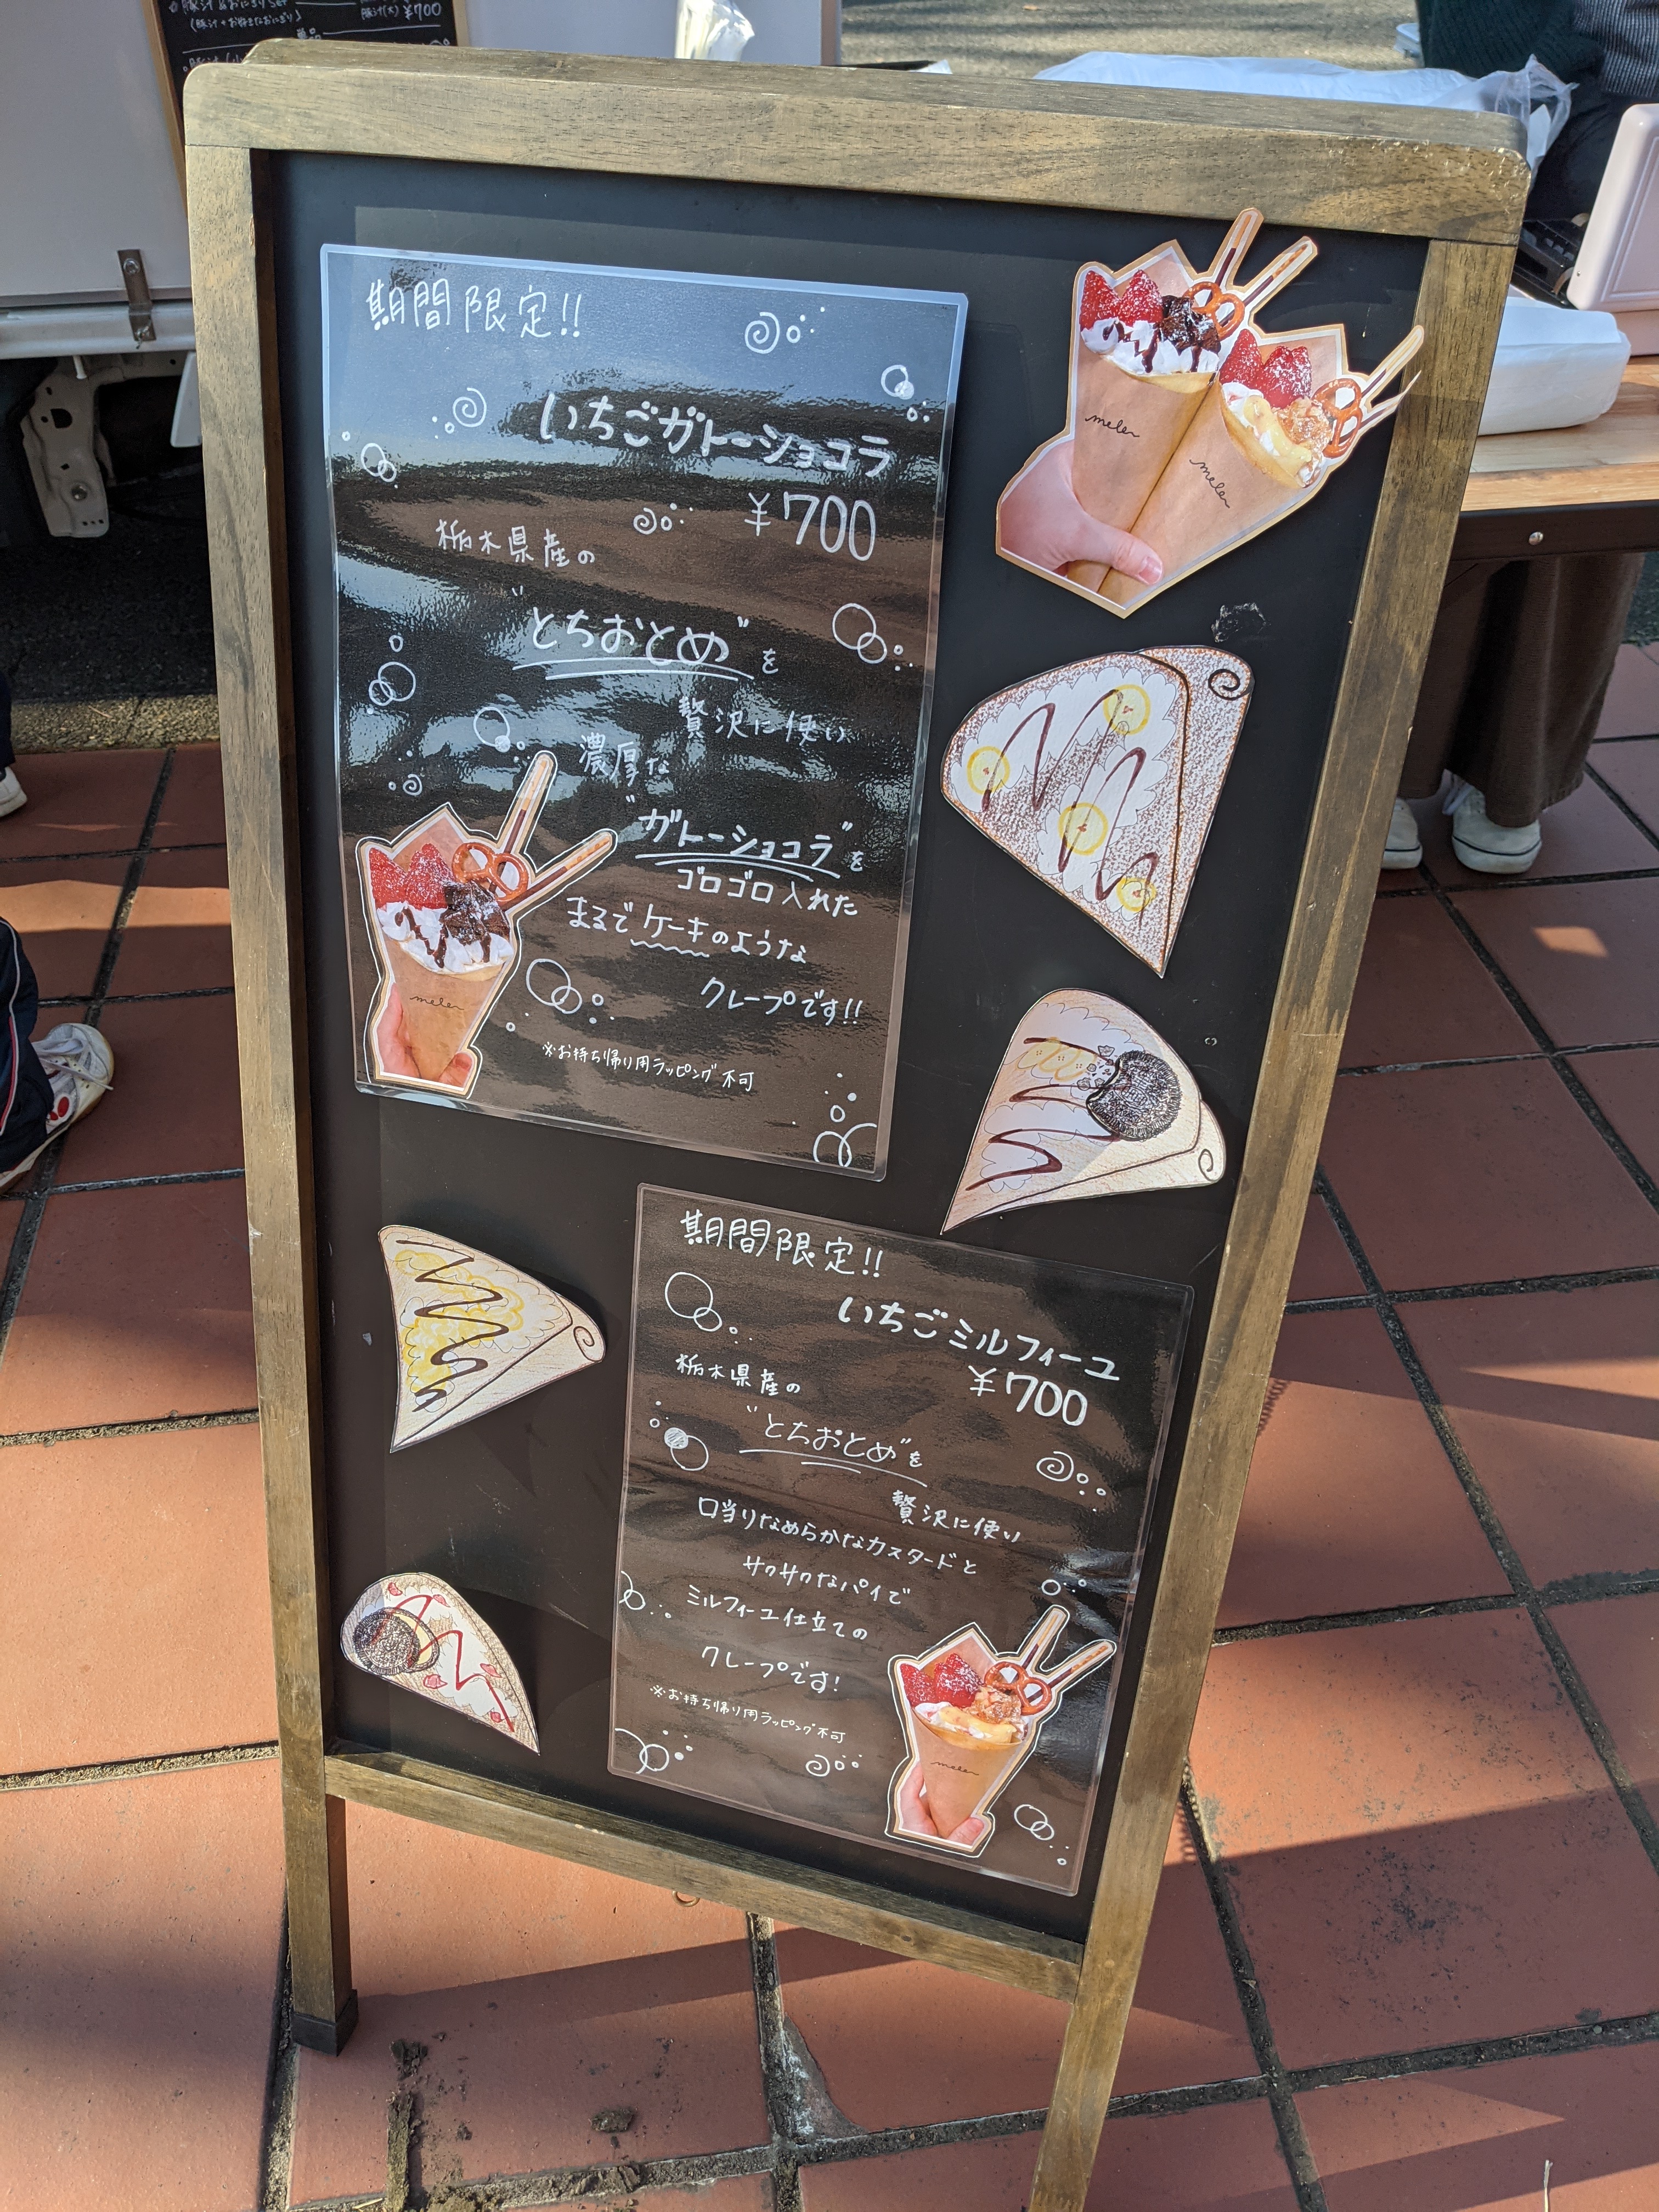 豚汁&おにぎりset
豚汁(大) ¥700
単品
期間限定!!
いちごガトーショコラ
¥700
栃木県産の
"とちおとめ"を
贅沢に使い
濃厚な
"ガトーショコラ"を
ゴロゴロ入れた
まるでケーキのような
クレープです!!
※お持ち帰り用ラッピング不可
melen
melen
melen
期間限定!!
いちごミルフィーユ
¥700
栃木県産の
"とちおとめ"を
贅沢に使い
口当りなめらかなカスタードと
サクサクなパイで
ミルフィーユ仕立ての
クレープです!
※お持ち帰り用ラッピング不可
melen